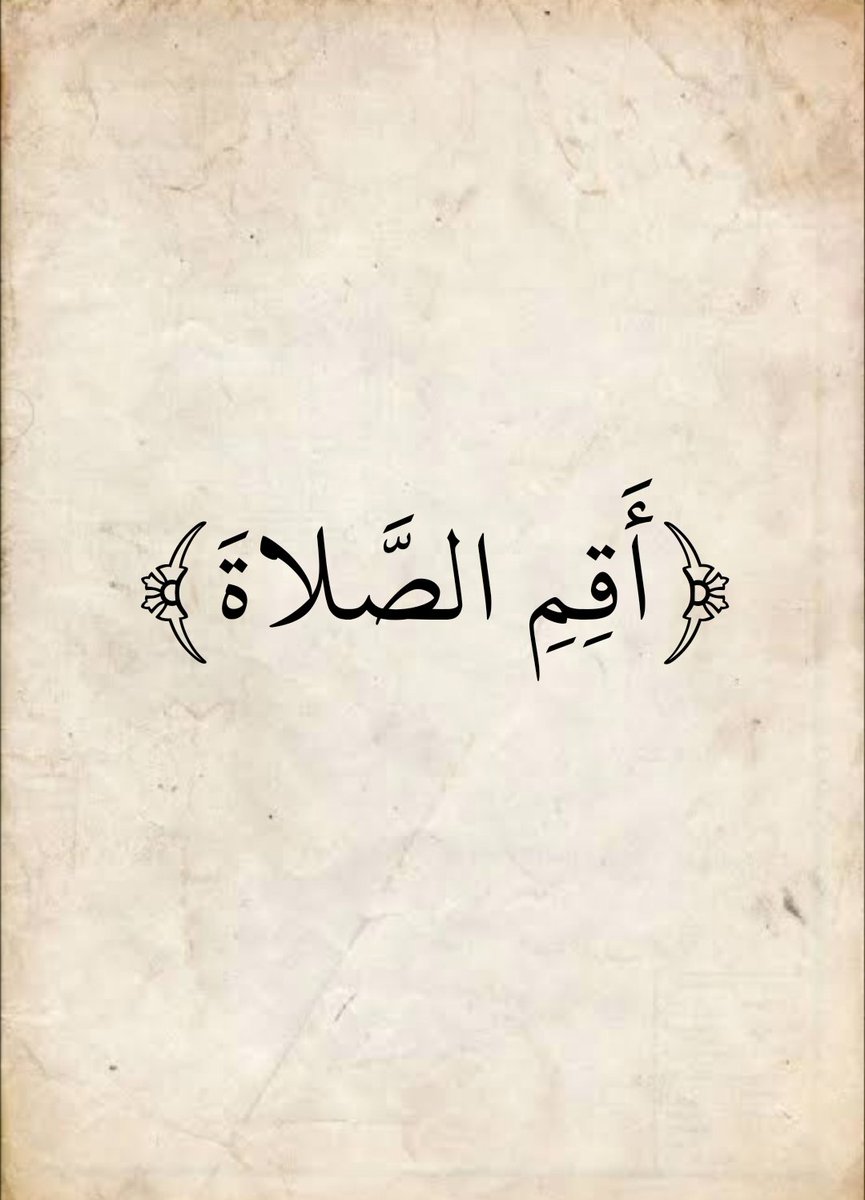 ﴿أَقِمِ الصَّلاةَ﴾